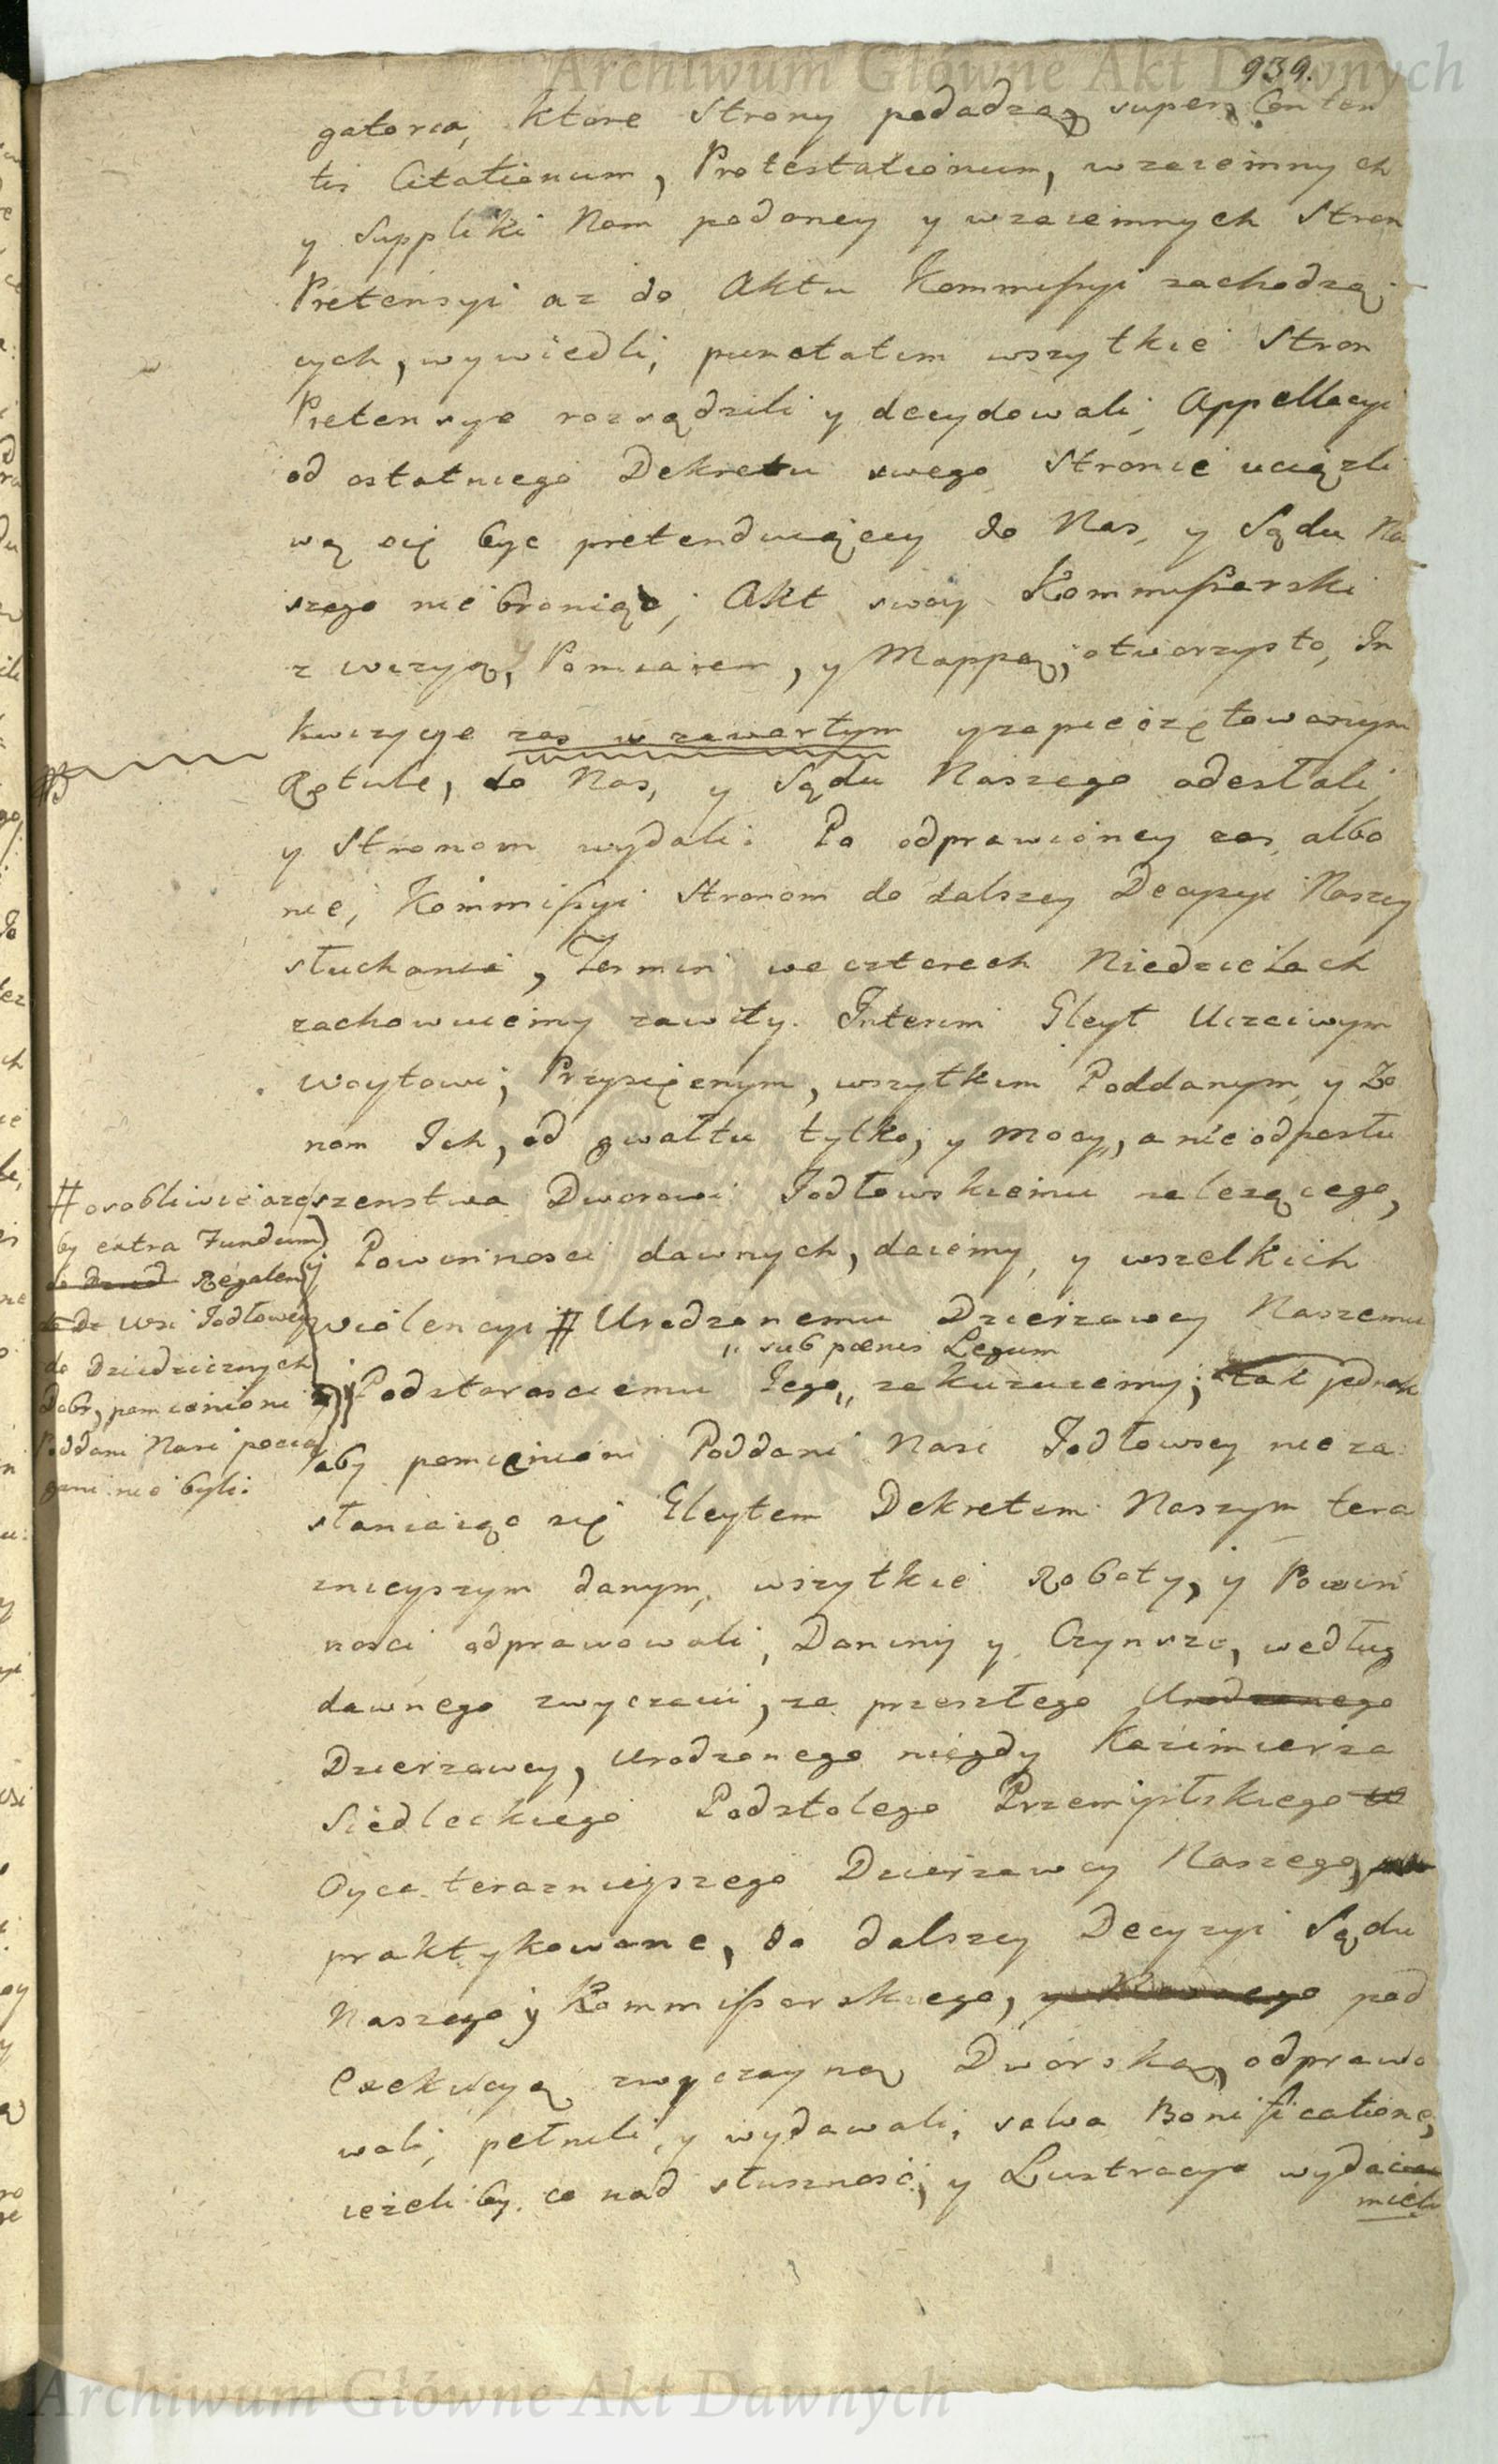 Archiwum Główne Akt Dawnych
939.
gatoria, ktore Strony podadzą super Conten
tis Citationum, Protestationum, wzaiemnych
y Suppliki Nam podaney y wzaiemnych Stron
Pretensyi az do Aktu Kommissyi zachodzą
cych, wywiedli, punctatim wszytkie Stron
Pretensye rozsądzili y decydowali, Appellacyi
od ostatniego Dekretu swego Stronie uciązli
wą się byc pretenduiącey do Nas, y Sądu Na
szego nie broniąc, Akt swoy Kommissarski
z wizyą, y Pomiarem, y Mappą, otworzysto, In
kwizycye zas w zawartym y zapieczętowanym
Rotule, do Nas, y Sądu Naszego odesłali,
y Stronom wydali. Po odprawioney zas, albo
nie, Kommissyi Stronom do dalszey Decyzyi Naszey
słuchania, Termin we czterech Niedzielach
zachowuiemy zawity. Interim Gleyt Uczciwym
Woytowi, Przysięznym, wszytkim Poddanym, y Zo
nom Ich, od gwałtu tylko, y mocy, a nie odposłu
szenstwa Dworowi Jodłowskiemu nalezącego,
y Powinnosci dawnych, daiemy, y wszelkich
violencyi # Urodzonemu Dzierzawcy Naszemu
" sub pœnis Legum
y Podstarosciemu Iego " zakazuiemy; tak jednak
aby pomienieni Poddani Nasi Jodłowscy nie za
słaniaiąc się Gleytem Dekretem Naszym tera
znieyszym danym, wszytkie Roboty, y Powin
nosci odprawowali, Daniny y Czynsze, według
dawnego zwyczaiu, za przeszłego Urodzonego
Dzierzawcy, Urodzonego niegdy Kazimierza
Siedleckiego Podstolego Przemyslskiego
Oyca teraznieyszego Dzierzawcy Naszego,
praktykowane, do dalszey Decyzyi Sądu
Naszego y Kommissarskiego, pod
Exekucyą zwyczayną Dworską, odprawo
wali, pełnili, y wydawali, salva Bonificatione,
iezeli by co nad słusznosc, y Lustracye wydac
mieli
# osobliwie azeby
by extra Fundum
Regalem
Wsi Jodłowey
do Dziedzicznych
Dobr, pomienieni
Poddani Nasi pocią
gani nie byli.
Archiwum Główne Akt Dawnych